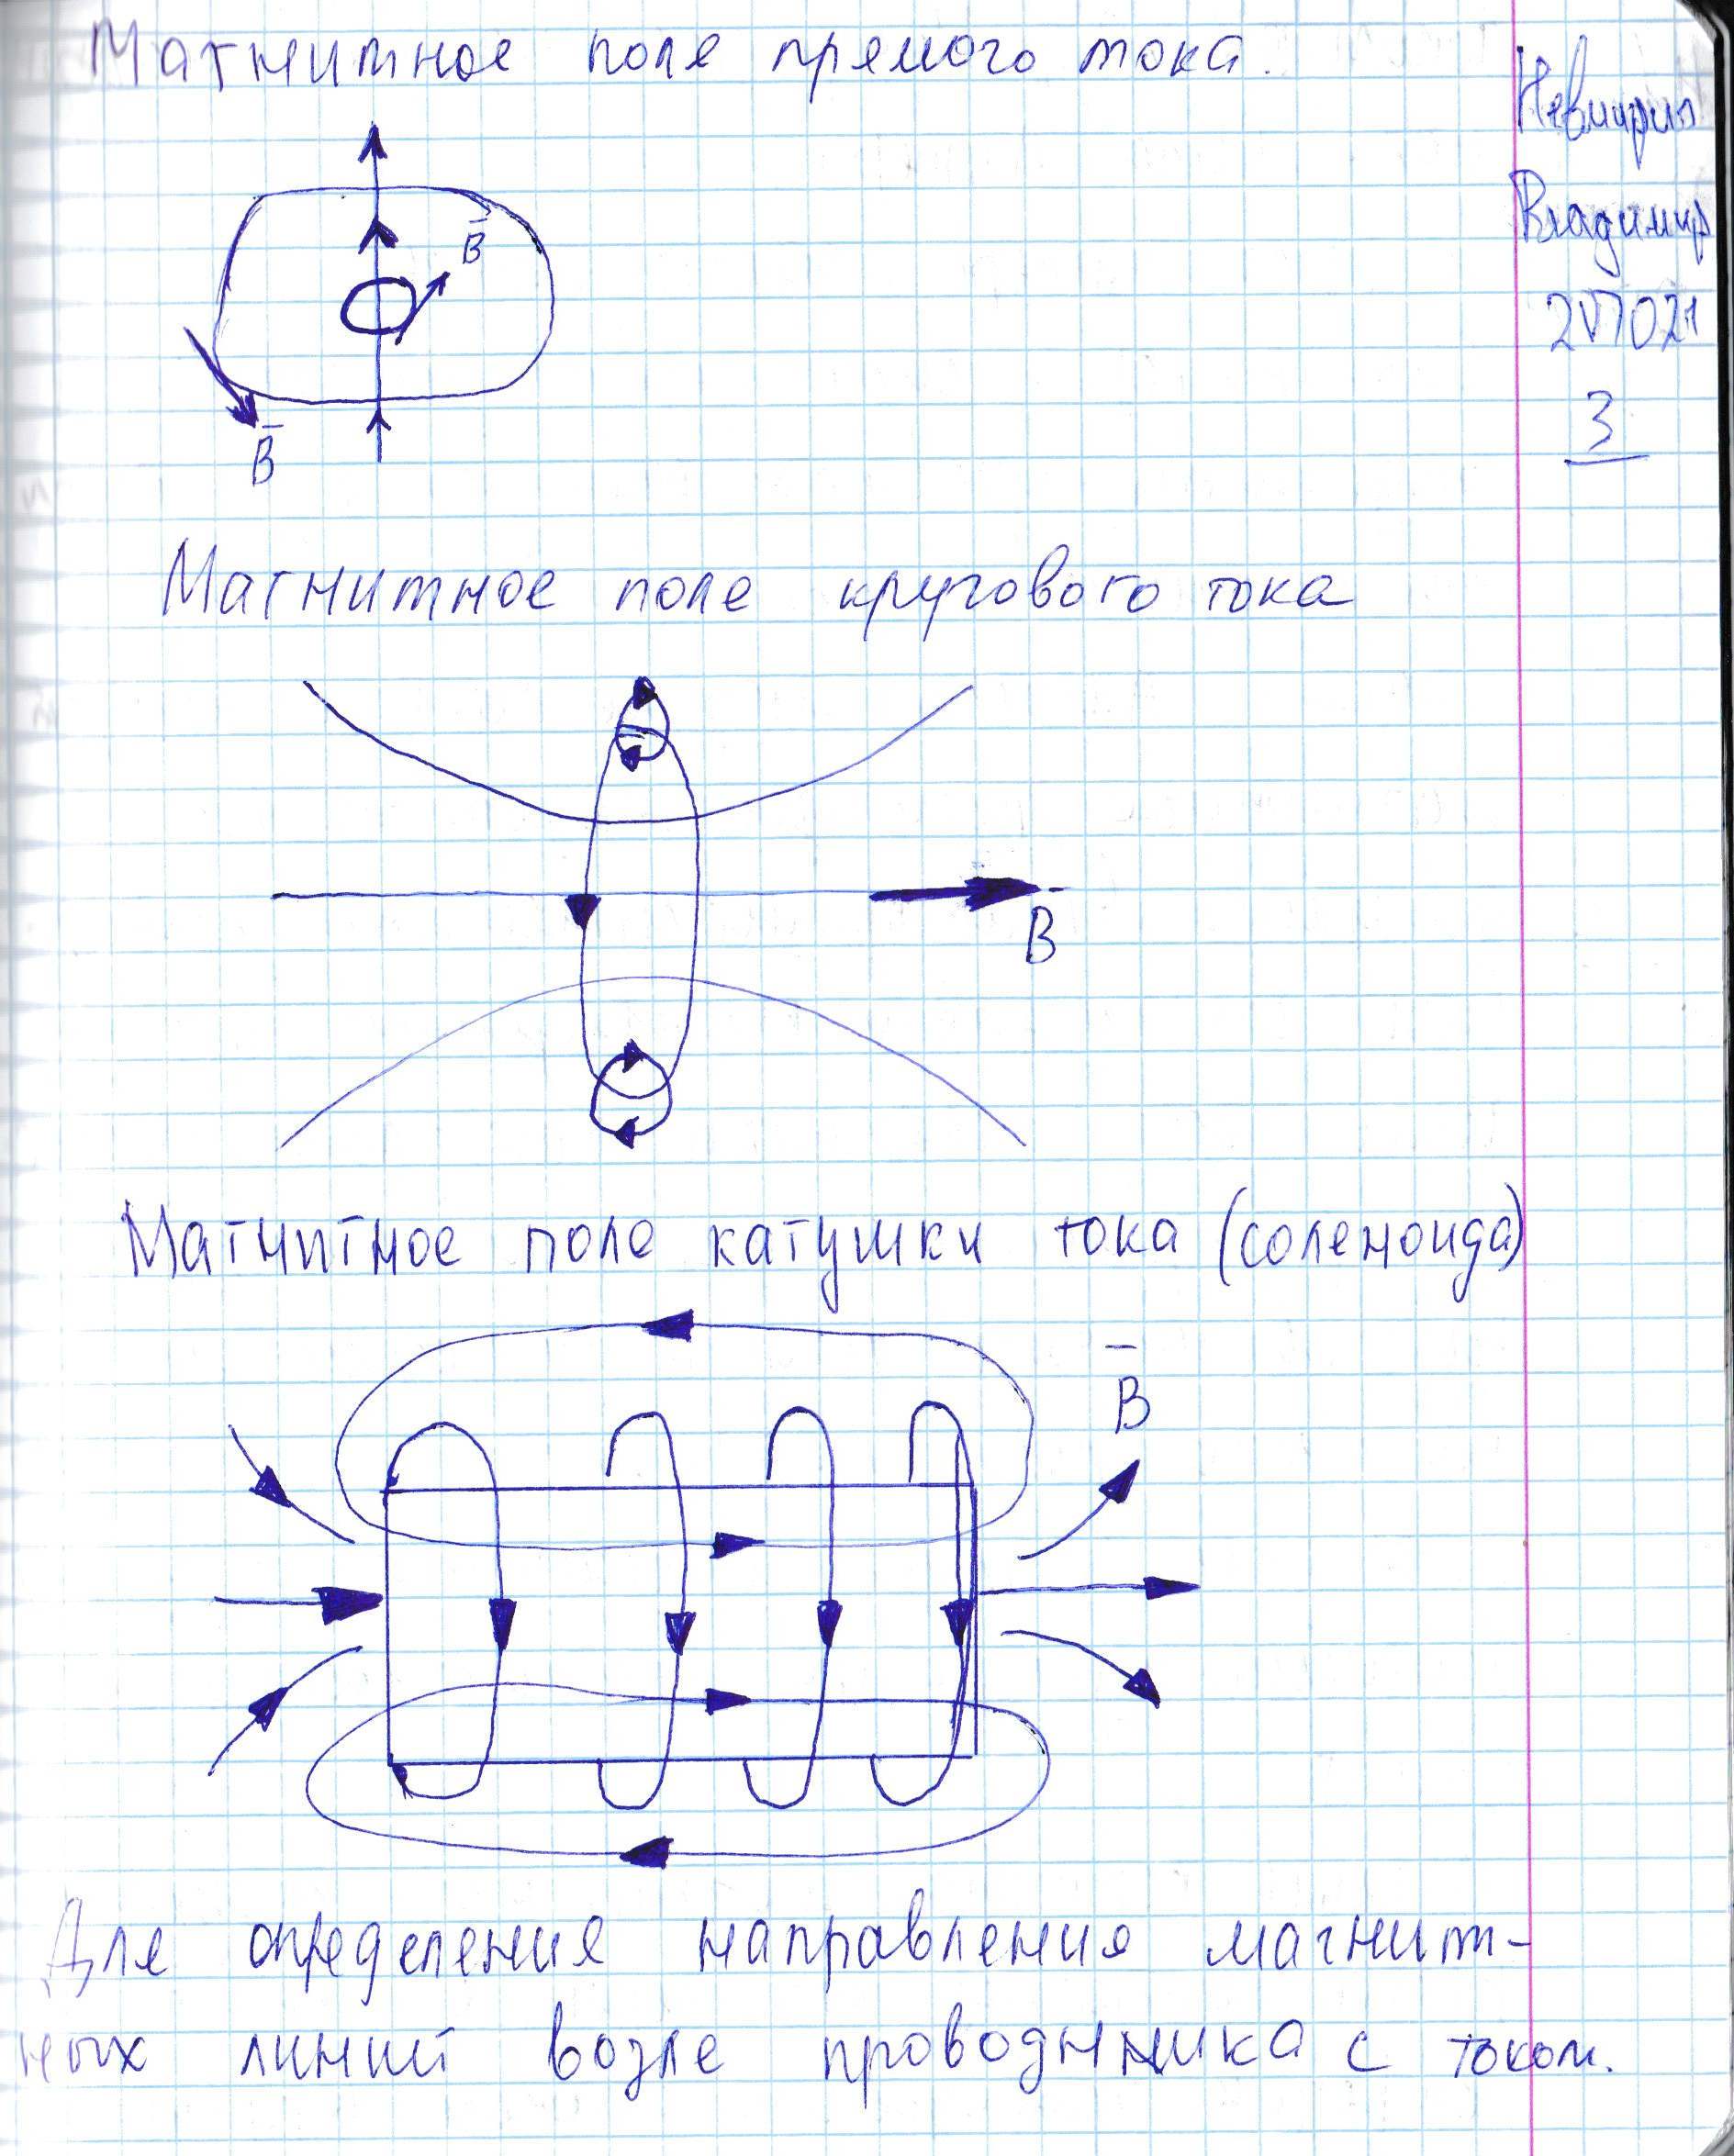 Магнитное поле прямого тока.
Владимир
3
B
B
Магнитное поле кругового тока
B
Магнитное поле катушки тока (соленоида)
B
Для определения направления магнит-
ных линий возле проводника с током.